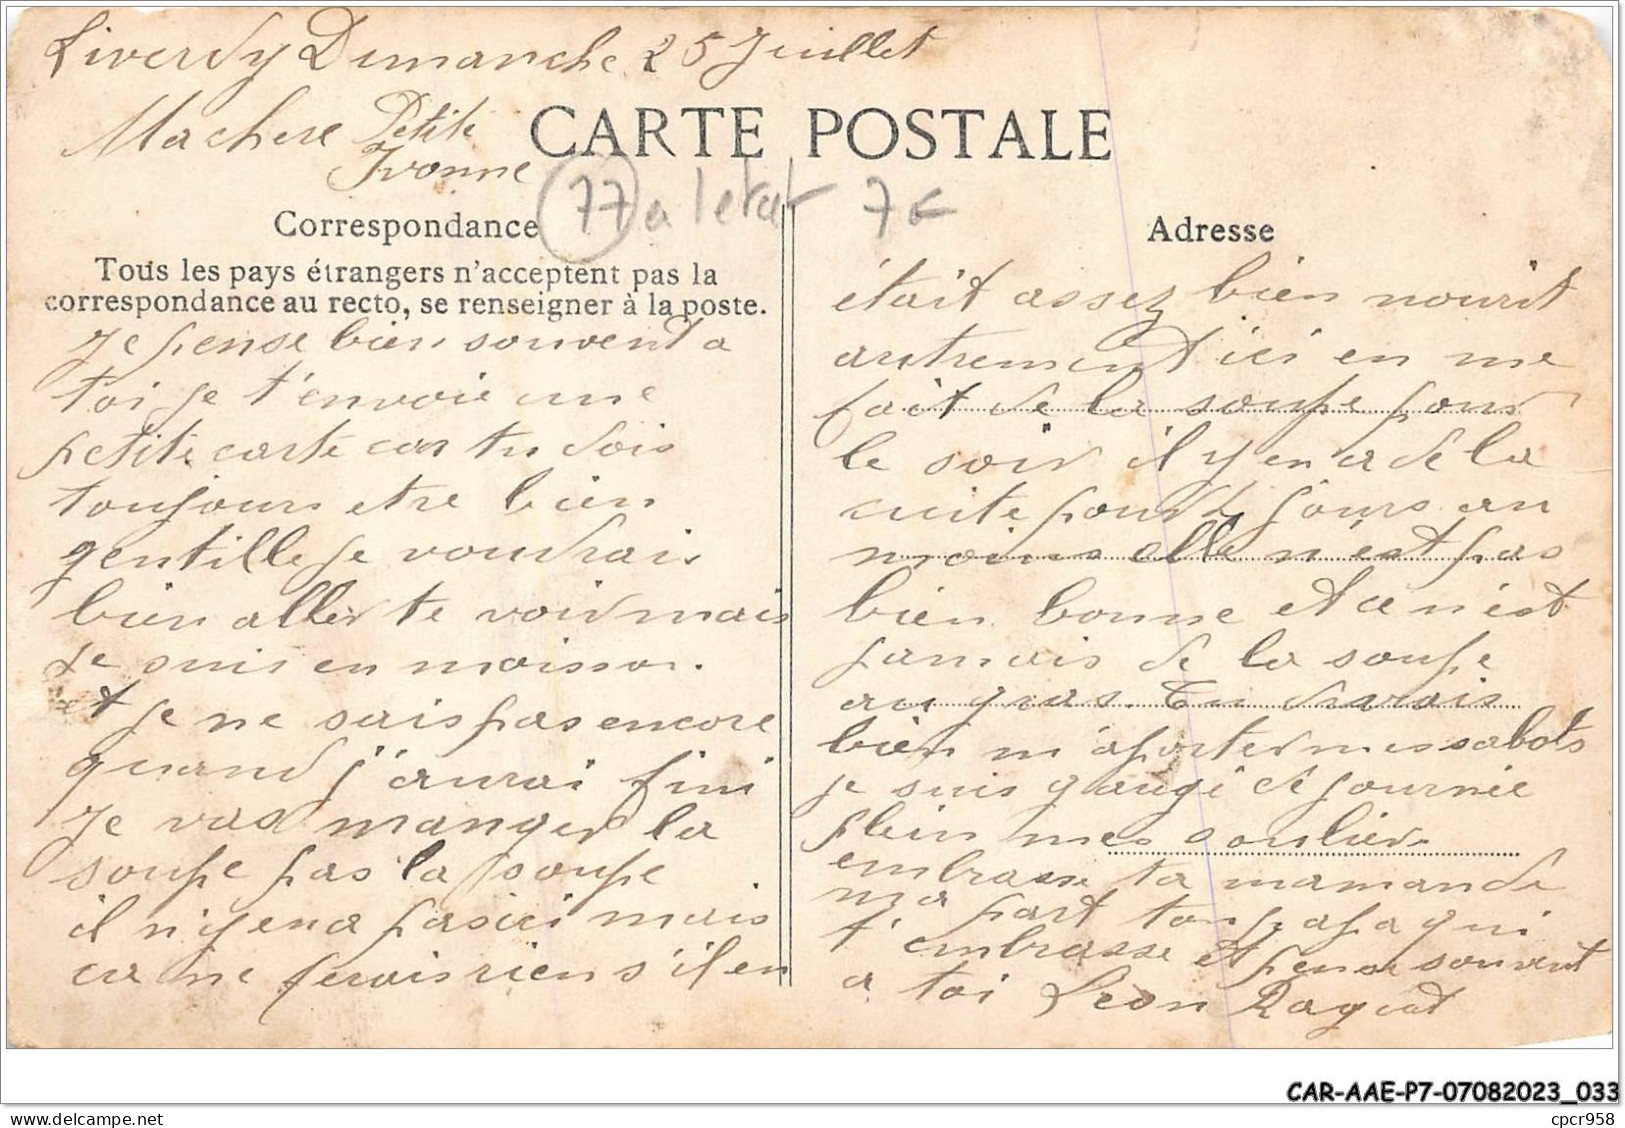 Liverdy Dimanche 25 Juillet
Ma chere Petite
Ivonne
CARTE POSTALE
77 a letat 7€
Correspondance
Adresse
Tous les pays étrangers n'acceptent pas la
correspondance au recto, se renseigner à la poste.
Je pense bien souvent a
toi je t'envoie une
petite carte car tu dois
toujours etre bien
gentille je voudrais
bien aller te voir mais
je suis en moisson.
et je ne sais pas encore
quand j'aurai fini
Je vas manger la
soupe pas la soupe
il n'y en a pas ici mais
ca ne ferais rien s'il en
était assez bien nourit
autrement ici en me
fait de la soupe pour
le soir il y en a de la
cuite pour jours au
moins elle n'est pas
bien bonne et ce n'est
jamais de la soupe
au gras. Tu devrais
bien m'aporter mes sabots
je suis et journée
plein mes soulier
embrasse ta maman de
ma part ton papa qui
t'embrasse et pense souvent
a toi Leon
CAR-AAE-P7-07082023_033
cpcr958